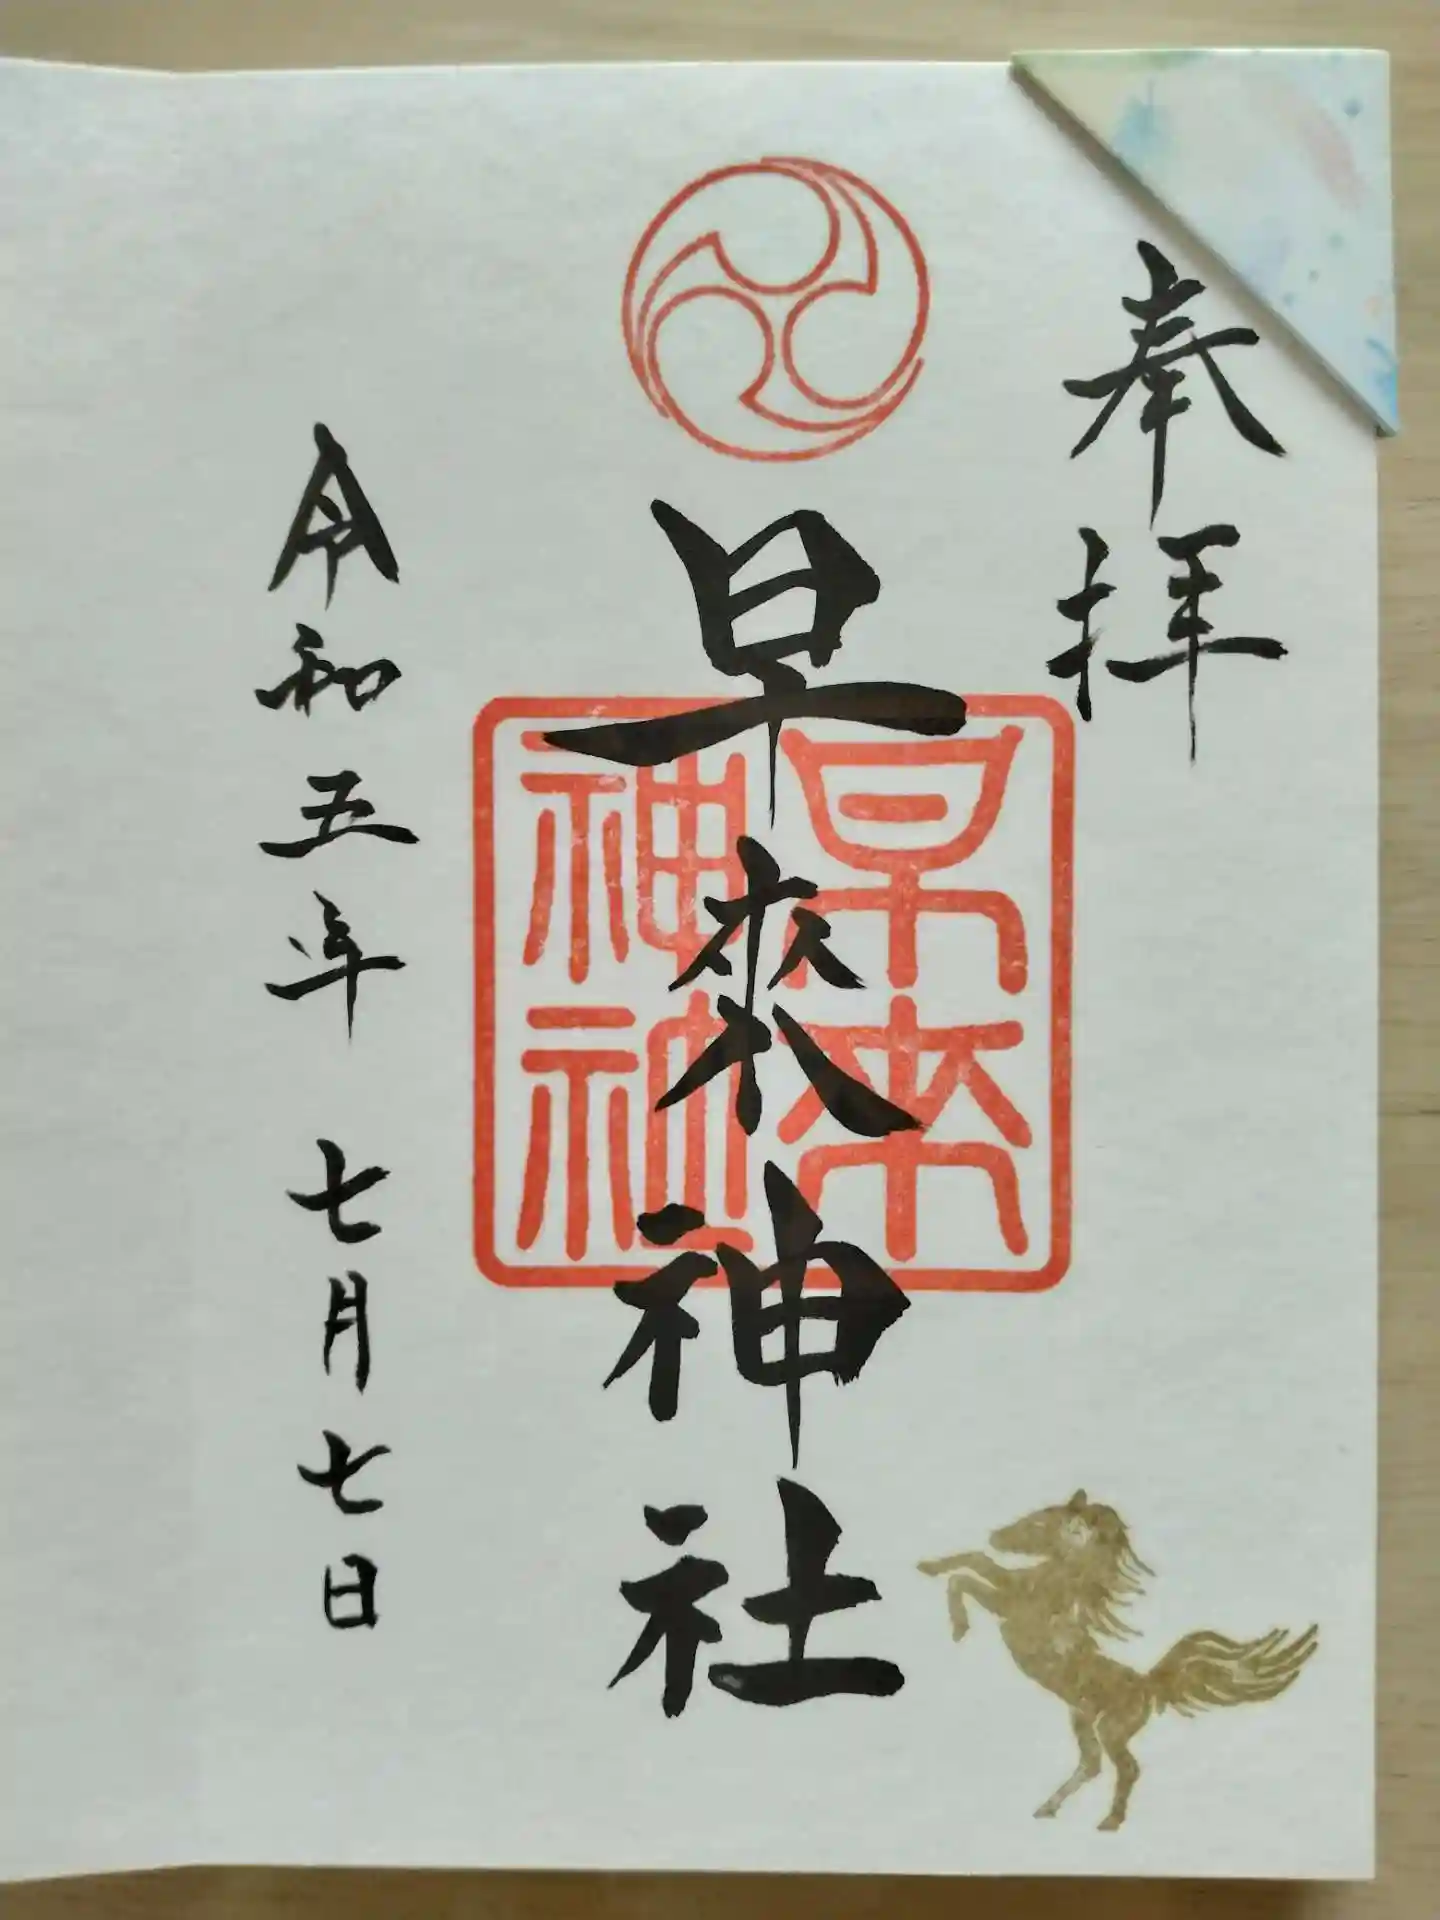 奉拝
早來神社
早来神社
令和五年 七月七日